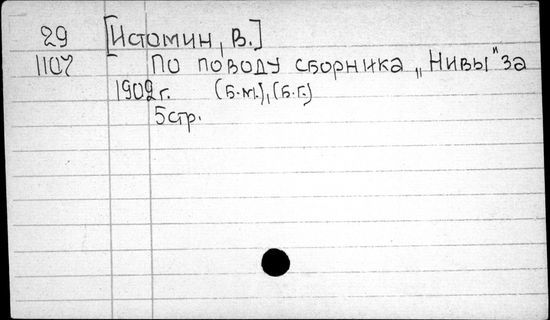 29 [Истомин, В.]
1107 По поводу сборника „Нивы" за
1902 г. (б.м.), (б.г.)
5 стр.